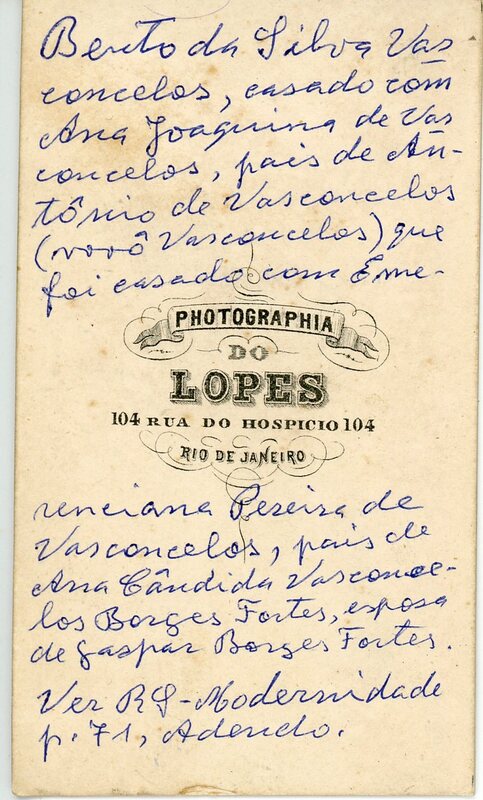 Bento da Silva Vas
concelos, casado com
Ana Joaquina de Vas
concelos, pais de An-
tônio de Vasconcelos
(vovô Vasconcelos) que
foi casado com Eme-
PHOTOGRAPHIA
DO
LOPES
104 RUA DO HOSPICIO 104
RIO DE JANEIRO
renciana Pereira de
Vasconcelos, pais de
Ana Cândida Vasconce-
los Borges Fortes, esposa
de Gaspar Borges Fortes.
Ver RS-Modernidade
p. 71, Adendo.